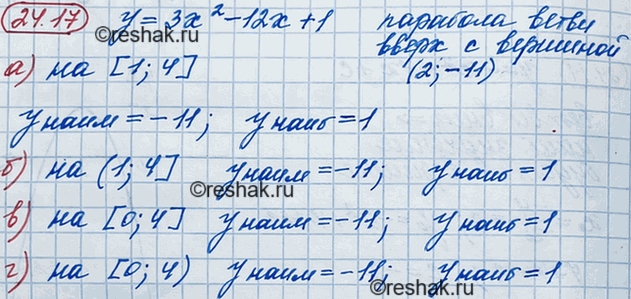 24.17 y = 3x² - 12x + 1 парабола ветви
вверх с вершиной
а) на [1; 4] (2; -11)
y наим = -11; y наиб = 1
©reshak.ru
б) на (1; 4] y наим = -11; y наиб = 1
©reshak.ru
в) на [0; 4] y наим = -11; y наиб = 1
г) на [0; 4) y наим = -11; y наиб = 1
©reshak.ru